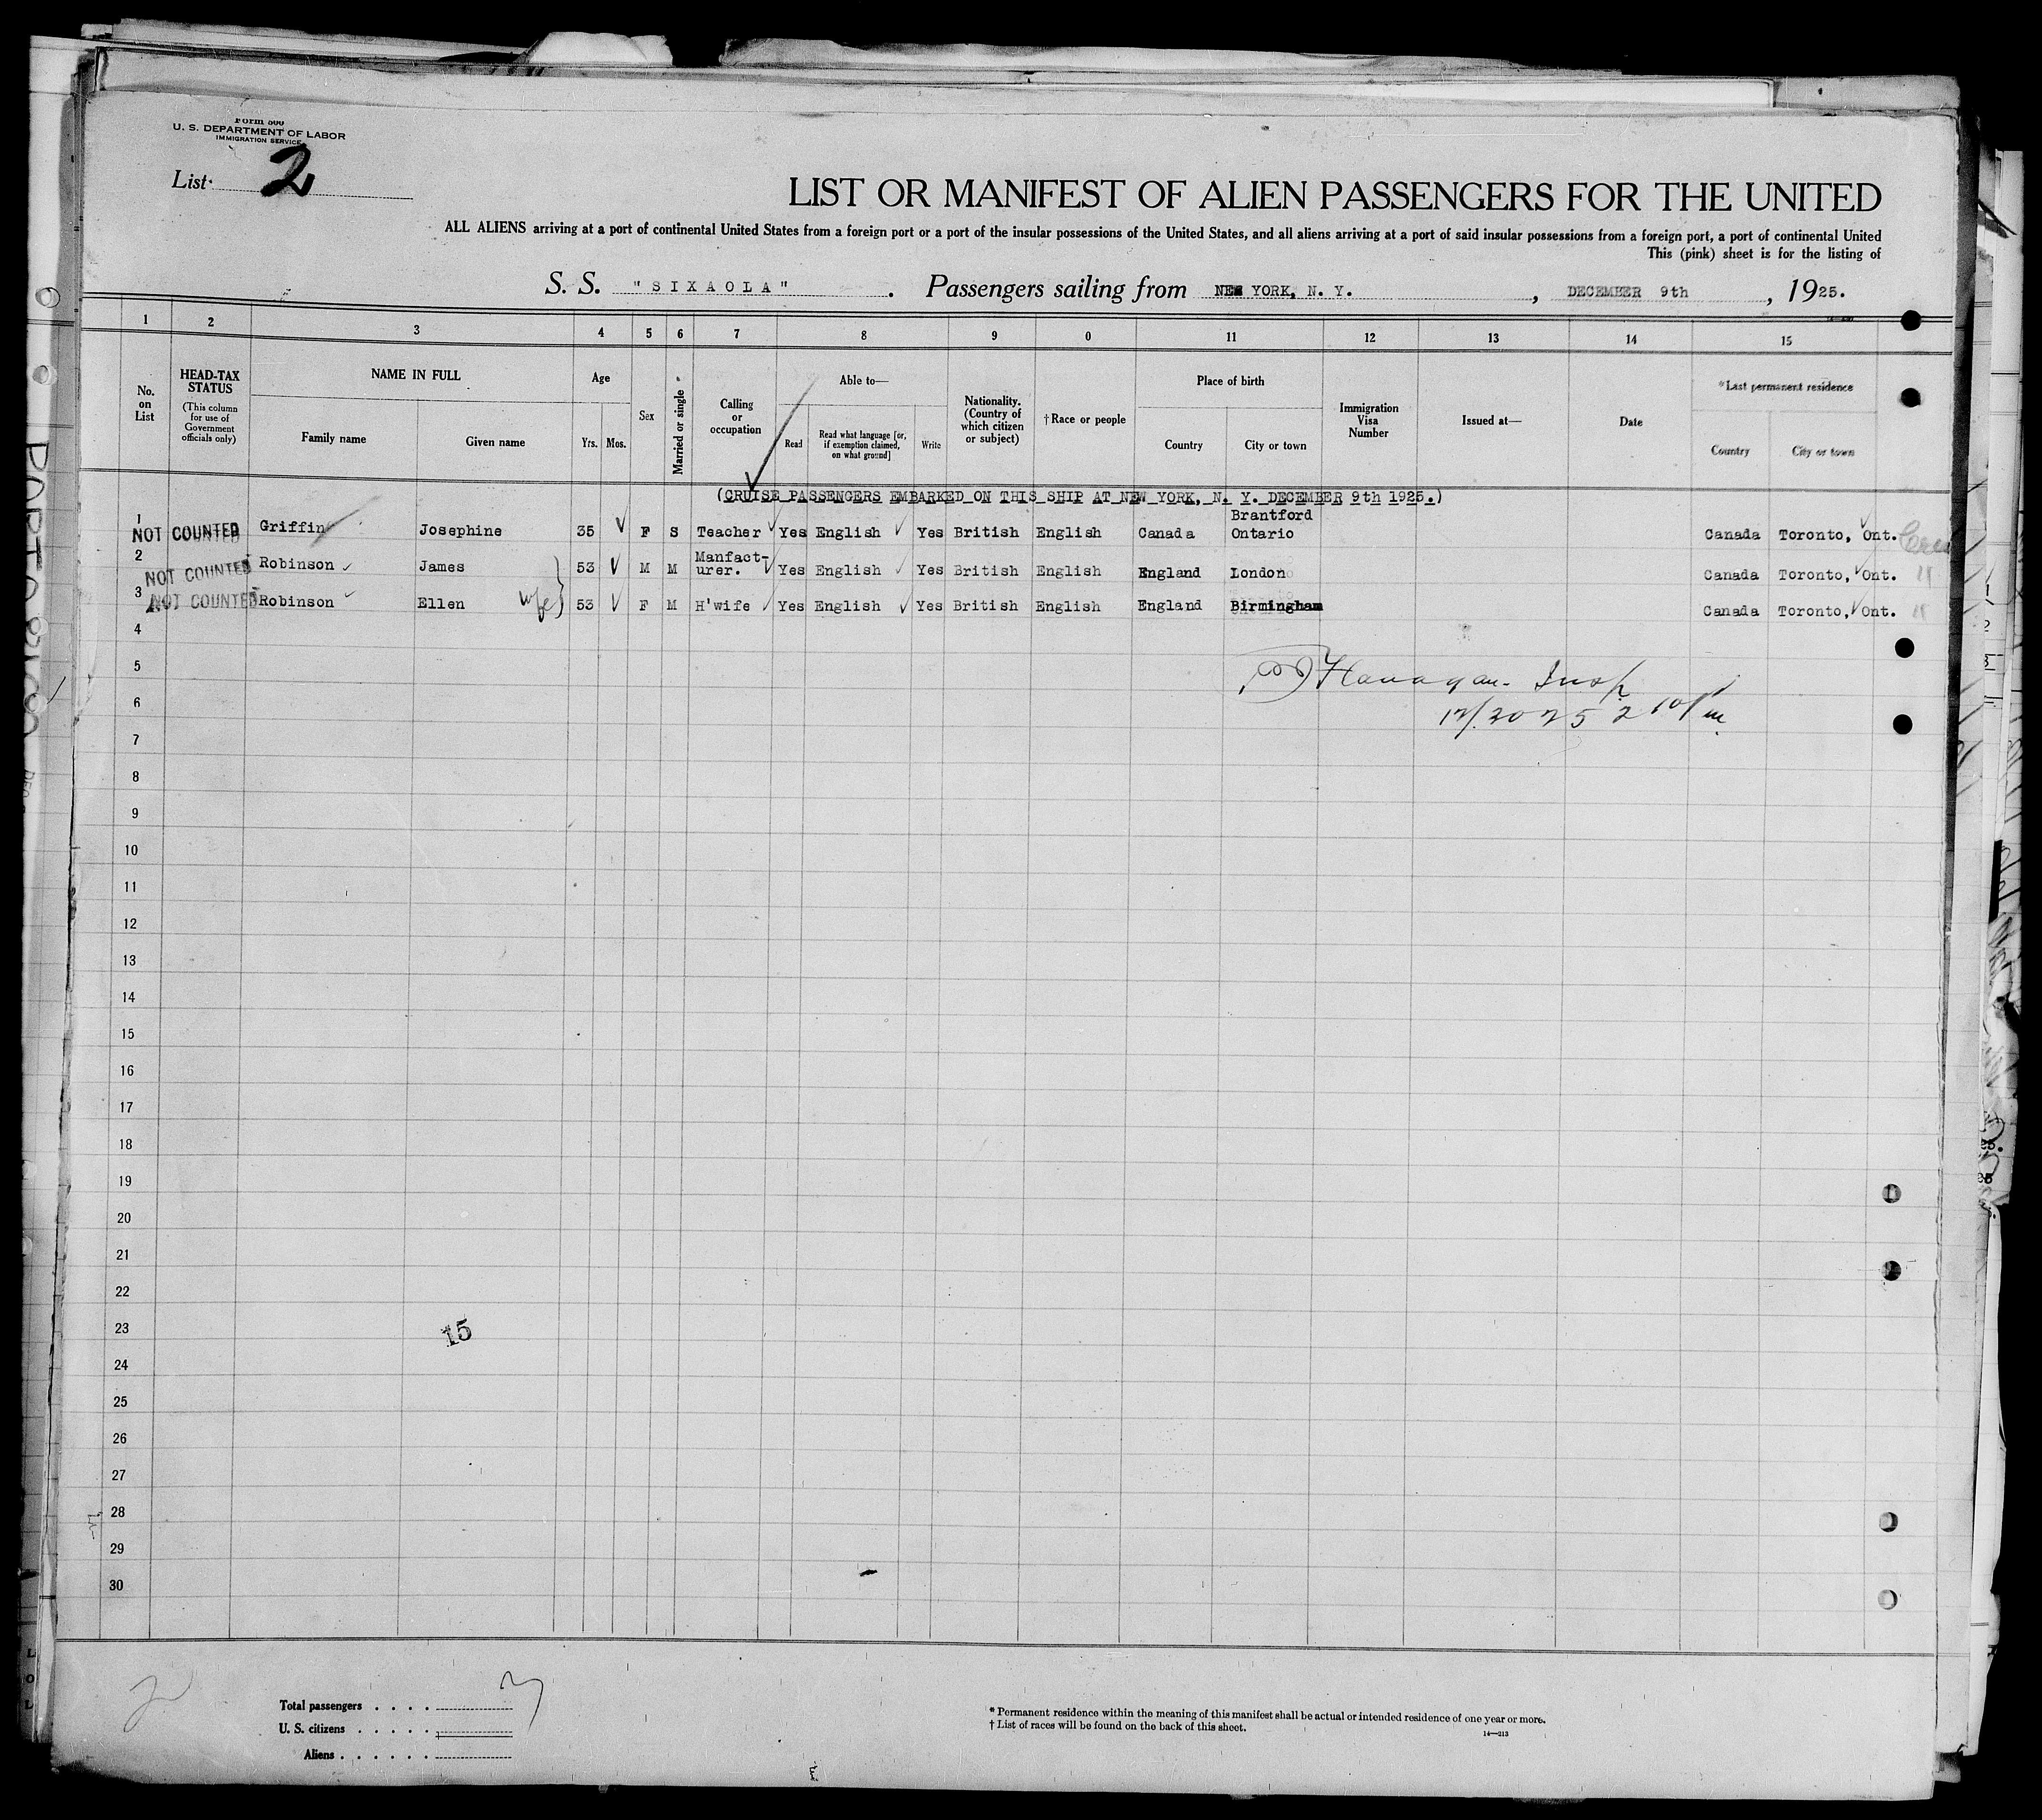 Form 500
U. S. DEPARTMENT OF LABOR
IMMIGRATION SERVICE
List 2
LIST OR MANIFEST OF ALIEN PASSENGERS FOR THE UNITED
ALL ALIENS arriving at a port of continental United States from a foreign port or a port of the insular possessions of the United States, and all aliens arriving at a port of said insular possessions from a foreign port, a port of continental United
This (pink) sheet is for the listing of
S. S. "SIXAOLA". Passengers sailing from NEW YORK, N. Y., DECEMBER 9th, 1925.
1 2 3 4 5 6 7 8 9 0 11 12 13 14 15
No. on List
HEAD-TAX STATUS (This column for use of Government officials only)
NAME IN FULL
Family name
Given name
Age
Yrs. Mos.
Sex
Married or single
Calling or occupation
Able to—
Read
Read what language [or, if exemption claimed, on what ground]
Write
Nationality. (Country of which citizen or subject)
†Race or people
Place of birth
Country
City or town
Immigration Visa Number
Issued at—
Date
*Last permanent residence
Country
City or town
(CRUISE PASSENGERS EMBARKED ON THIS SHIP AT NEW YORK, N. Y. DECEMBER 9th 1925.)
1 NOT COUNTED Griffin Josephine 35 F S Teacher Yes English Yes British English Canada Brantford Ontario Canada Toronto, Ont.
2 NOT COUNTED Robinson James 53 M M Manfact-urer. Yes English Yes British English England London Canada Toronto, Ont. "
3 NOT COUNTED Robinson Ellen wife 53 F M H'wife Yes English Yes British English England Birmingham Canada Toronto, Ont. "
4
5 Flanagan. Insp.
6 12/20 25 2 10 PM
7
8
9
10
11
12
13
14
15
16
17
18
19
20
21
22
23 15
24
25
26
27
28
29
30
Total passengers . . . . 3
U. S. citizens . . . . .
Aliens . . . . . .
* Permanent residence within the meaning of this manifest shall be actual or intended residence of one year or more.
† List of races will be found on the back of this sheet.
14—213